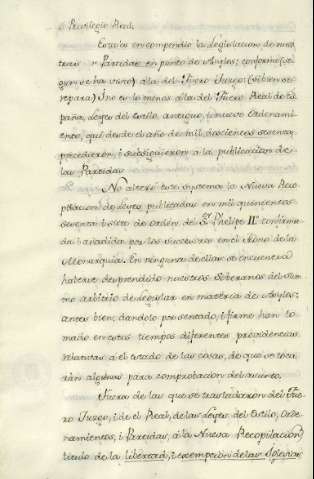 o Privilegio Real.
Esta es en compendio la Legislacion de nues
tras Partidas en punto de Asylos; conforme (se
gun se ha visto) a la del Fuero Juzgo, (si bien se
repara) i no lo menos a la del Fuero Real de Es
paña, Leyes del Estilo, antiguo, i nuevo Ordenami
ento, que desde el año de mil doscientos sesenta
precedieron, i subsiguieron a la publicacion de
las Partidas.
No alteró este systema la Nueva Reco
pilacion de Leyes, publicada en mil quinientos
sesenta i siete de orden del Sr. Phelipe II. confirma
da i añadida por los successores en el trono de la
Monarquia. En ninguna de ellas se encuentra
haberse desprendido nuestros Soberanos del su
mo arbitrio de Legislar en materia de Asylos;
antes bien, dandolo por sentado, i firme han to
mado en estos tiempos diferentes providencias
relativas a el estado de las cosas, de que se toca
ràn algunas para comprobacion del asunto.
Fuera de las que se trasladaron del Fue
ro Juzgo, i de el Real, de las Leyes del Estilo, Orde
namientos, i Partidas, à la Nueva Recopilacion,
titulo de la libertad, i exempcion de las Iglesias